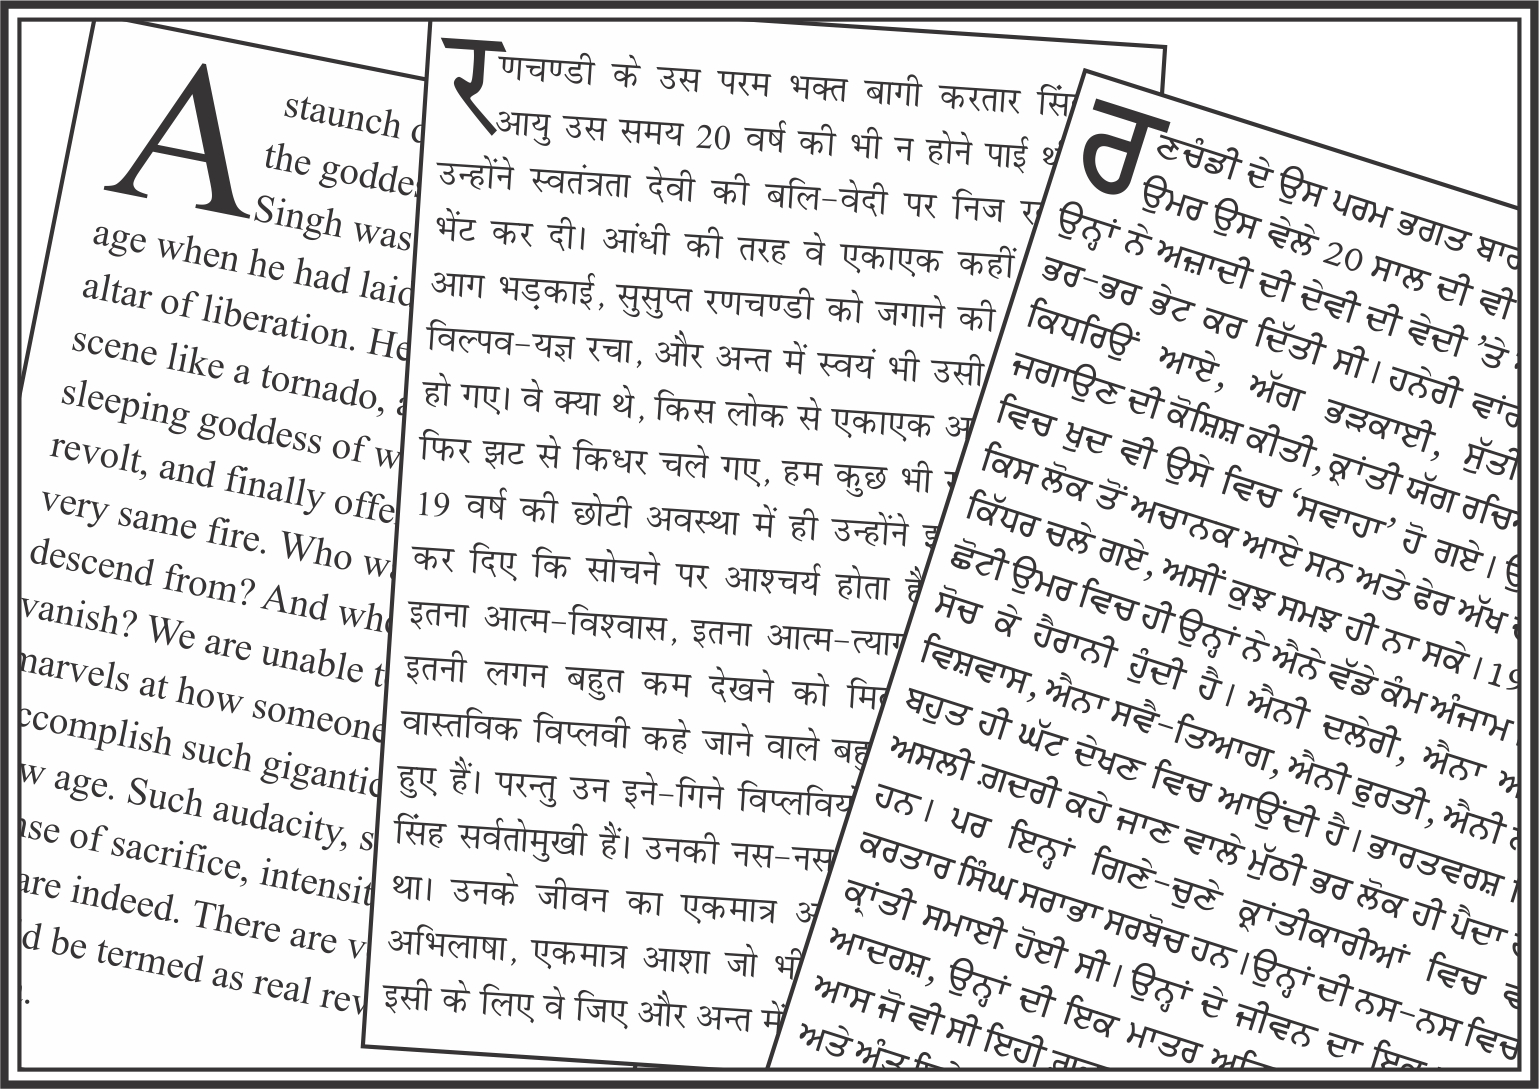 A staunch
the
Singh was
age when he had laid
altar of liberation. He
scene like a tornado,
sleeping goddess of
revolt, and finally
very same fire. Who
descend from? And
vanish? We are unable
marvels at how someone
such gigantic
age. Such audacity,
of sacrifice,
indeed. There are
be termed as real
रणचण्डी के उस परम भक्त बागी करतार
आयु उस समय 20 वर्ष की भी न होने पाई
उन्होंने स्वतंत्रता देवी की बलि-वेदी पर निज
भेंट कर दी। आंधी की तरह वे एकाएक कहीं
आग भड़काई, सुसुप्त रणचण्डी को जगाने की
विल्पव-यज्ञ रचा, और अन्त में स्वयं भी उसी
हो गए। वे क्या थे, किस लोक से एकाएक
फिर झट से किधर चले गए, हम कुछ भी
19 वर्ष की छोटी अवस्था में ही उन्होंने
कर दिए कि सोचने पर आश्चर्य होता
इतना आत्म-विश्वास, इतना
इतनी लगन बहुत कम देखने को
वास्तविक विप्लवी कहे जाने वाले
हुए हैं। परन्तु उन इने-गिने
सिंह सर्वतोमुखी हैं। उनकी नस-नस
था। उनके जीवन का एकमात्र
अभिलाषा, एकमात्र आशा जो
इसी के लिए वे जिए और अन्त में
ਰਣਚੰਡੀ ਦੇ ਉਸ ਪਰਮ ਭਗਤ
ਉਮਰ ਉਸ ਵੇਲੇ 20 ਸਾਲ ਦੀ ਵੀ
ਉਨ੍ਹਾਂ ਨੇ ਅਜ਼ਾਦੀ ਦੀ ਦੇਵੀ ਦੀ ਵੇਦੀ ’ਤੇ
ਭਰ-ਭਰ ਭੇਟ ਕਰ ਦਿੱਤੀ ਸੀ। ਹਨੇਰੀ
ਕਿਧਰਿਉਂ ਆਏ, ਅੱਗ ਭੜਕਾਈ, ਸੁੱਤੀ
ਜਗਾਉਣ ਦੀ ਕੋਸ਼ਿਸ਼ ਕੀਤੀ, ਕ੍ਰਾਂਤੀ ਯੱਗ
ਵਿਚ ਖ਼ੁਦ ਵੀ ਉਸੇ ਵਿਚ ‘ਸਵਾਹਾ’ ਹੋ ਗਏ।
ਕਿਸ ਲੋਕ ਤੋਂ ਅਚਾਨਕ ਆਏ ਸਨ ਅਤੇ ਫੇਰ ਅੱਖ
ਕਿੱਧਰ ਚਲੇ ਗਏ, ਅਸੀਂ ਕੁਝ ਸਮਝ ਹੀ ਨਾ ਸਕੇ।
ਛੋਟੀ ਉਮਰ ਵਿਚ ਹੀ ਉਨ੍ਹਾਂ ਨੇ ਐਨੇ ਵੱਡੇ ਕੰਮ ਅੰਜਾਮ
ਸੋਚ ਕੇ ਹੈਰਾਨੀ ਹੁੰਦੀ ਹੈ। ਐਨੀ ਦਲੇਰੀ, ਐਨਾ
ਵਿਸ਼ਵਾਸ, ਐਨਾ ਸਵੈ-ਤਿਆਗ, ਐਨੀ ਫੁਰਤੀ, ਐਨੀ
ਬਹੁਤ ਹੀ ਘੱਟ ਦੇਖਣ ਵਿਚ ਆਉਂਦੀ ਹੈ। ਭਾਰਤਵਰਸ਼
ਅਸਲੀ ਗ਼ਦਰੀ ਕਹੇ ਜਾਣ ਵਾਲੇ ਮੁੱਠੀ ਭਰ ਲੋਕ ਹੀ ਪੈਦਾ
ਹਨ। ਪਰ ਇਨ੍ਹਾਂ ਗਿਣੇ-ਚੁਣੇ ਕ੍ਰਾਂਤੀਕਾਰੀਆਂ ਵਿਚ
ਕਰਤਾਰ ਸਿੰਘ ਸਰਾਭਾ ਸਰਬੋਚ ਹਨ। ਉਨ੍ਹਾਂ ਦੀ ਨਸ-ਨਸ ਵਿਚ
ਕ੍ਰਾਂਤੀ ਸਮਾਈ ਹੋਈ ਸੀ। ਉਨ੍ਹਾਂ ਦੇ ਜੀਵਨ ਦਾ
ਆਦਰਸ਼, ਉਨ੍ਹਾਂ ਦੀ ਇਕ ਮਾਤਰ
ਆਸ ਜੋ ਵੀ ਸੀ ਇਹੀ
ਅਤੇ ਅੰਤ